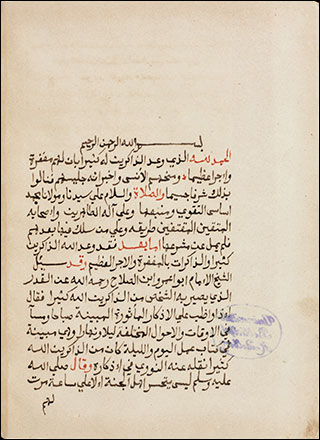 بسم الله الرحمن الرحيم
الحمد لله الذي وعد الذاكرين له كثيرا بان لهم مغفرة
واجرا عظيما ومنحهم الانس واخبر انه جليسهم فنالوا
بذلك شرفا جسيما والصلاة والسلام على سيدنا ومولانا محمد
اساس التقوى ومنبعها وعلى آله الطاهرين واصحابه
المتقين المقتفين طريقه وعلى من سلك فيما بعدهم
فلم يمل عن مشرعها اما بعد فقد وعد الله الذاكرين
كثيرا والذاكرات بالمغفرة والاجر العظيم وقد سئل
الشيخ الامام ابو عمرو ابن الصلاح رحمه الله عن القدر
الذي يصير به الشخص من الذاكرين الله كثيرا فقال
اذا واظب على الاذكار الماثورة المبينة صباحا ومساء
في الاوقات والاحوال المختلفة ليلا ونهارا وهي مبينة
في كتاب عمل اليوم والليلة كان من الذاكرين الله
كثيرا نقله عنه النووي في اذكاره وقال صلى الله
عليه وسلم ليس يتحسر اهل الجنة الا على ساعة مرت
بهم